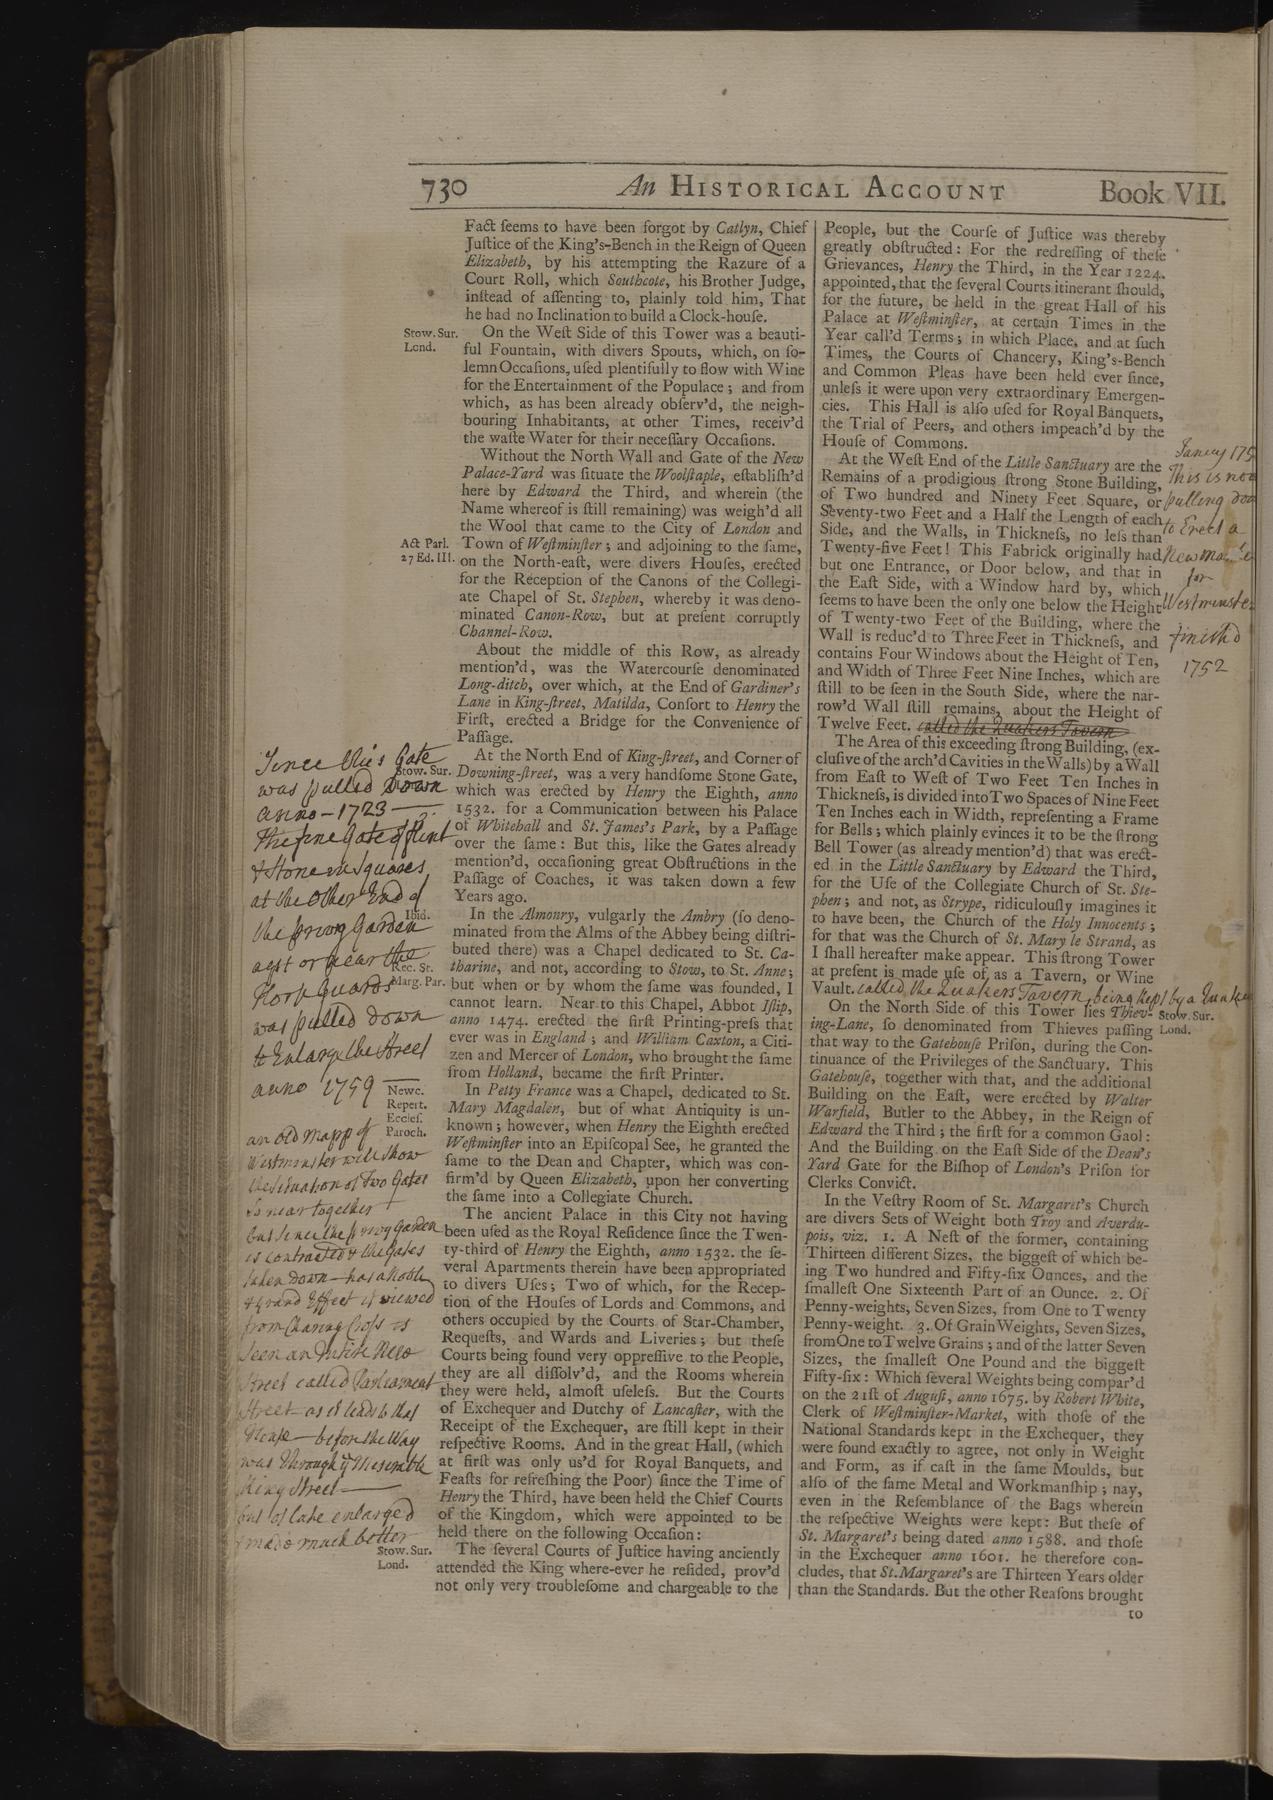 730 An HISTORICAL ACCOUNT Book VII.
Fact ſeems to have been forgot by Catlyn, Chief
Juſtice of the King's-Bench in the Reign of Queen
Elizabeth, by his attempting the Razure of a
Court Roll, which Southcote, his Brother Judge,
inſtead of aſſenting to, plainly told him, That
he had no Inclination to build a Clock-houſe.
Stow. Sur.
Lond.
On the Weſt Side of this Tower was a beauti-
ful Fountain, with divers Spouts, which, on ſo-
lemn Occaſions, uſed plentifully to flow with Wine
for the Entertainment of the Populace; and from
which, as has been already obſerv'd, the neigh-
bouring Inhabitants, at other Times, receiv'd
the waſte Water for their neceſſary Occaſions.
Without the North Wall and Gate of the New
Palace-Yard was ſituate the Woolſtaple, eſtabliſh'd
here by Edward the Third, and wherein (the
Name whereof is ſtill remaining) was weigh'd all
the Wool that came to the City of London and
Act Parl.
27 Ed. III.
Town of Weſtminſter; and adjoining to the ſame,
on the North-eaſt, were divers Houſes, erected
for the Reception of the Canons of the Collegi-
ate Chapel of St. Stephen, whereby it was deno-
minated Canon-Row, but at preſent corruptly
Channel-Row.
About the middle of this Row, as already
mention'd, was the Watercourſe denominated
Long-ditch, over which, at the End of Gardiner's
Lane in King-ſtreet, Matilda, Conſort to Henry the
Firſt, erected a Bridge for the Convenience of
Paſſage.
Stow. Sur.
At the North End of King-ſtreet, and Corner of
Downing-ſtreet, was a very handſome Stone Gate,
which was erected by Henry the Eighth, anno
1532. for a Communication between his Palace
of Whitehall and St. James's Park, by a Paſſage
over the ſame: But this, like the Gates already
mention'd, occaſioning great Obſtructions in the
Paſſage of Coaches, it was taken down a few
Years ago.
Ibid.
In the Almonry, vulgarly the Ambry (ſo deno-
minated from the Alms of the Abbey being diſtri-
buted there) was a Chapel dedicated to St. Ca-
Rec. St.
Marg. Par.
tharine, and not, according to Stow, to St. Anne;
but when or by whom the ſame was founded, I
cannot learn. Near to this Chapel, Abbot Iſlip,
anno 1474. erected the firſt Printing-preſs that
ever was in England; and William Caxton, a Citi-
zen and Mercer of London, who brought the ſame
from Holland, became the firſt Printer.
Newc.
Repert.
Eccleſ.
Paroch.
In Petty France was a Chapel, dedicated to St.
Mary Magdalen, but of what Antiquity is un-
known; however, when Henry the Eighth erected
Weſtminſter into an Epiſcopal See, he granted the
ſame to the Dean and Chapter, which was con-
firm'd by Queen Elizabeth, upon her converting
the ſame into a Collegiate Church.
The ancient Palace in this City not having
been uſed as the Royal Reſidence ſince the Twen-
ty-third of Henry the Eighth, anno 1532. the ſe-
veral Apartments therein have been appropriated
to divers Uſes; Two of which, for the Recep-
tion of the Houſes of Lords and Commons, and
others occupied by the Courts of Star-Chamber,
Requeſts, and Wards and Liveries; but theſe
Courts being found very oppreſſive to the People,
they are all diſſolv'd, and the Rooms wherein
they were held, almoſt uſeleſs. But the Courts
of Exchequer and Dutchy of Lancaſter, with the
Receipt of the Exchequer, are ſtill kept in their
reſpective Rooms. And in the great Hall, (which
at firſt was only us'd for Royal Banquets, and
Feaſts for refreſhing the Poor) ſince the Time of
Henry the Third, have been held the Chief Courts
of the Kingdom, which were appointed to be
held there on the following Occaſion:
Stow. Sur.
Lond.
The ſeveral Courts of Juſtice having anciently
attended the King where-ever he reſided, prov'd
not only very troubleſome and chargeable to the
Since this Gate
was pulled Down
anno - 1723
The fine Gate of flint
& Stone in Squares
at the Other End of
the privy Garden
agst or near the
Horse Guards
was pulled down
to Enlarge the Street
anno 1759
an old Mapp of
Westminster will show
the situation of Two Gates
so near together
but since the privy Garden
is contracted & the Gates
taken down - has a Noble
& Grand Effect is viewed
from Charing Cross is
seen an Intire New
Street called Parliament
Street as it leads to that
House - before the Way
was through ye Miserable
King Street
but of late enlarged
& made much better
People, but the Courſe of Juſtice was thereby
greatly obſtructed: For the redreſſing of theſe
Grievances, Henry the Third, in the Year 1224.
appointed, that the ſeveral Courts itinerant ſhould,
for the future, be held in the great Hall of his
Palace at Weſtminſter, at certain Times in the
Year call'd Terms; in which Place, and at ſuch
Times, the Courts of Chancery, King's-Bench
and Common Pleas have been held ever ſince,
unleſs it were upon very extraordinary Emergen-
cies. This Hall is alſo uſed for Royal Banquets,
the Trial of Peers, and others impeach'd by the
Houſe of Commons.
At the Weſt End of the Little Sanctuary are the
Remains of a prodigious ſtrong Stone Building,
of Two hundred and Ninety Feet Square, or
Seventy-two Feet and a Half the Length of each
Side, and the Walls, in Thickneſs, no leſs than
Twenty-five Feet! This Fabrick originally had
but one Entrance, or Door below, and that in
the Eaſt Side, with a Window hard by, which
ſeems to have been the only one below the Height
of Twenty-two Feet of the Building, where the
Wall is reduc'd to Three Feet in Thickneſs, and
contains Four Windows about the Height of Ten,
and Width of Three Feet Nine Inches, which are
ſtill to be ſeen in the South Side, where the nar-
row'd Wall ſtill remains, about the Height of
Twelve Feet. called the Quakers Tavern
The Area of this exceeding ſtrong Building, (ex-
cluſive of the arch'd Cavities in the Walls) by a Wall
from Eaſt to Weſt of Two Feet Ten Inches in
Thickneſs, is divided into Two Spaces of Nine Feet
Ten Inches each in Width, repreſenting a Frame
for Bells; which plainly evinces it to be the ſtrong
Bell Tower (as already mention'd) that was erect-
ed in the Little Sanctuary by Edward the Third,
for the Uſe of the Collegiate Church of St. Ste-
phen; and not, as Strype, ridiculouſly imagines it
to have been, the Church of the Holy Innocents;
for that was the Church of St. Mary le Strand, as
I ſhall hereafter make appear. This ſtrong Tower
at preſent is made uſe of, as a Tavern, or Wine
Vault. called the Quakers Tavern, being kept by a Quaker
On the North Side of this Tower lies Thiev-
Stow. Sur.
Lond.
ing-Lane, ſo denominated from Thieves paſſing
that way to the Gatehouſe Priſon, during the Con-
tinuance of the Privileges of the Sanctuary. This
Gatehouſe, together with that, and the additional
Building on the Eaſt, were erected by Walter
Warfield, Butler to the Abbey, in the Reign of
Edward the Third; the firſt for a common Gaol:
And the Building on the Eaſt Side of the Dean's
Yard Gate for the Biſhop of London's Priſon for
Clerks Convict.
In the Veſtry Room of St. Margaret's Church
are divers Sets of Weight both Troy and Averdu-
pois, viz. 1. A Neſt of the former, containing
Thirteen different Sizes, the biggeſt of which be-
ing Two hundred and Fifty-ſix Ounces, and the
ſmalleſt One Sixteenth Part of an Ounce. 2. Of
Penny-weights, Seven Sizes, from One to Twenty
Penny-weight. 3. Of Grain Weights, Seven Sizes,
from One to Twelve Grains; and of the latter Seven
Sizes, the ſmalleſt One Pound and the biggeſt
Fifty-ſix: Which ſeveral Weights being compar'd
on the 21ſt of Auguſt, anno 1675. by Robert White,
Clerk of Weſtminſter-Market, with thoſe of the
National Standards kept in the Exchequer, they
were found exactly to agree, not only in Weight
and Form, as if caſt in the ſame Moulds, but
alſo of the ſame Metal and Workmanſhip; nay,
even in the Reſemblance of the Bags wherein
the reſpective Weights were kept: But theſe of
St. Margaret's being dated anno 1588. and thoſe
in the Exchequer anno 1601. he therefore con-
cludes, that St. Margaret's are Thirteen Years older
than the Standards. But the other Reaſons brought
to
This is now
pulling dow
to Erect a
New
for
Westminster
finishd
1752